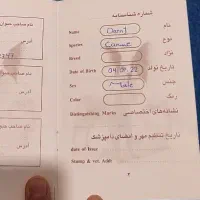 شماره شناسنامه
Name Danil نام
Species Canine نوع
Breed نژاد
Date of Birth 04.01.22 تاریخ تولد
Sex Male جنس
Color رنگ
Distinguishing Marks نشانه‌های اختصاصی
تاریخ تنظیم مهر و امضای دامپزشک
date of Issue
Stamp & vet. Addr
نام صاحب
آدرس
آدرس